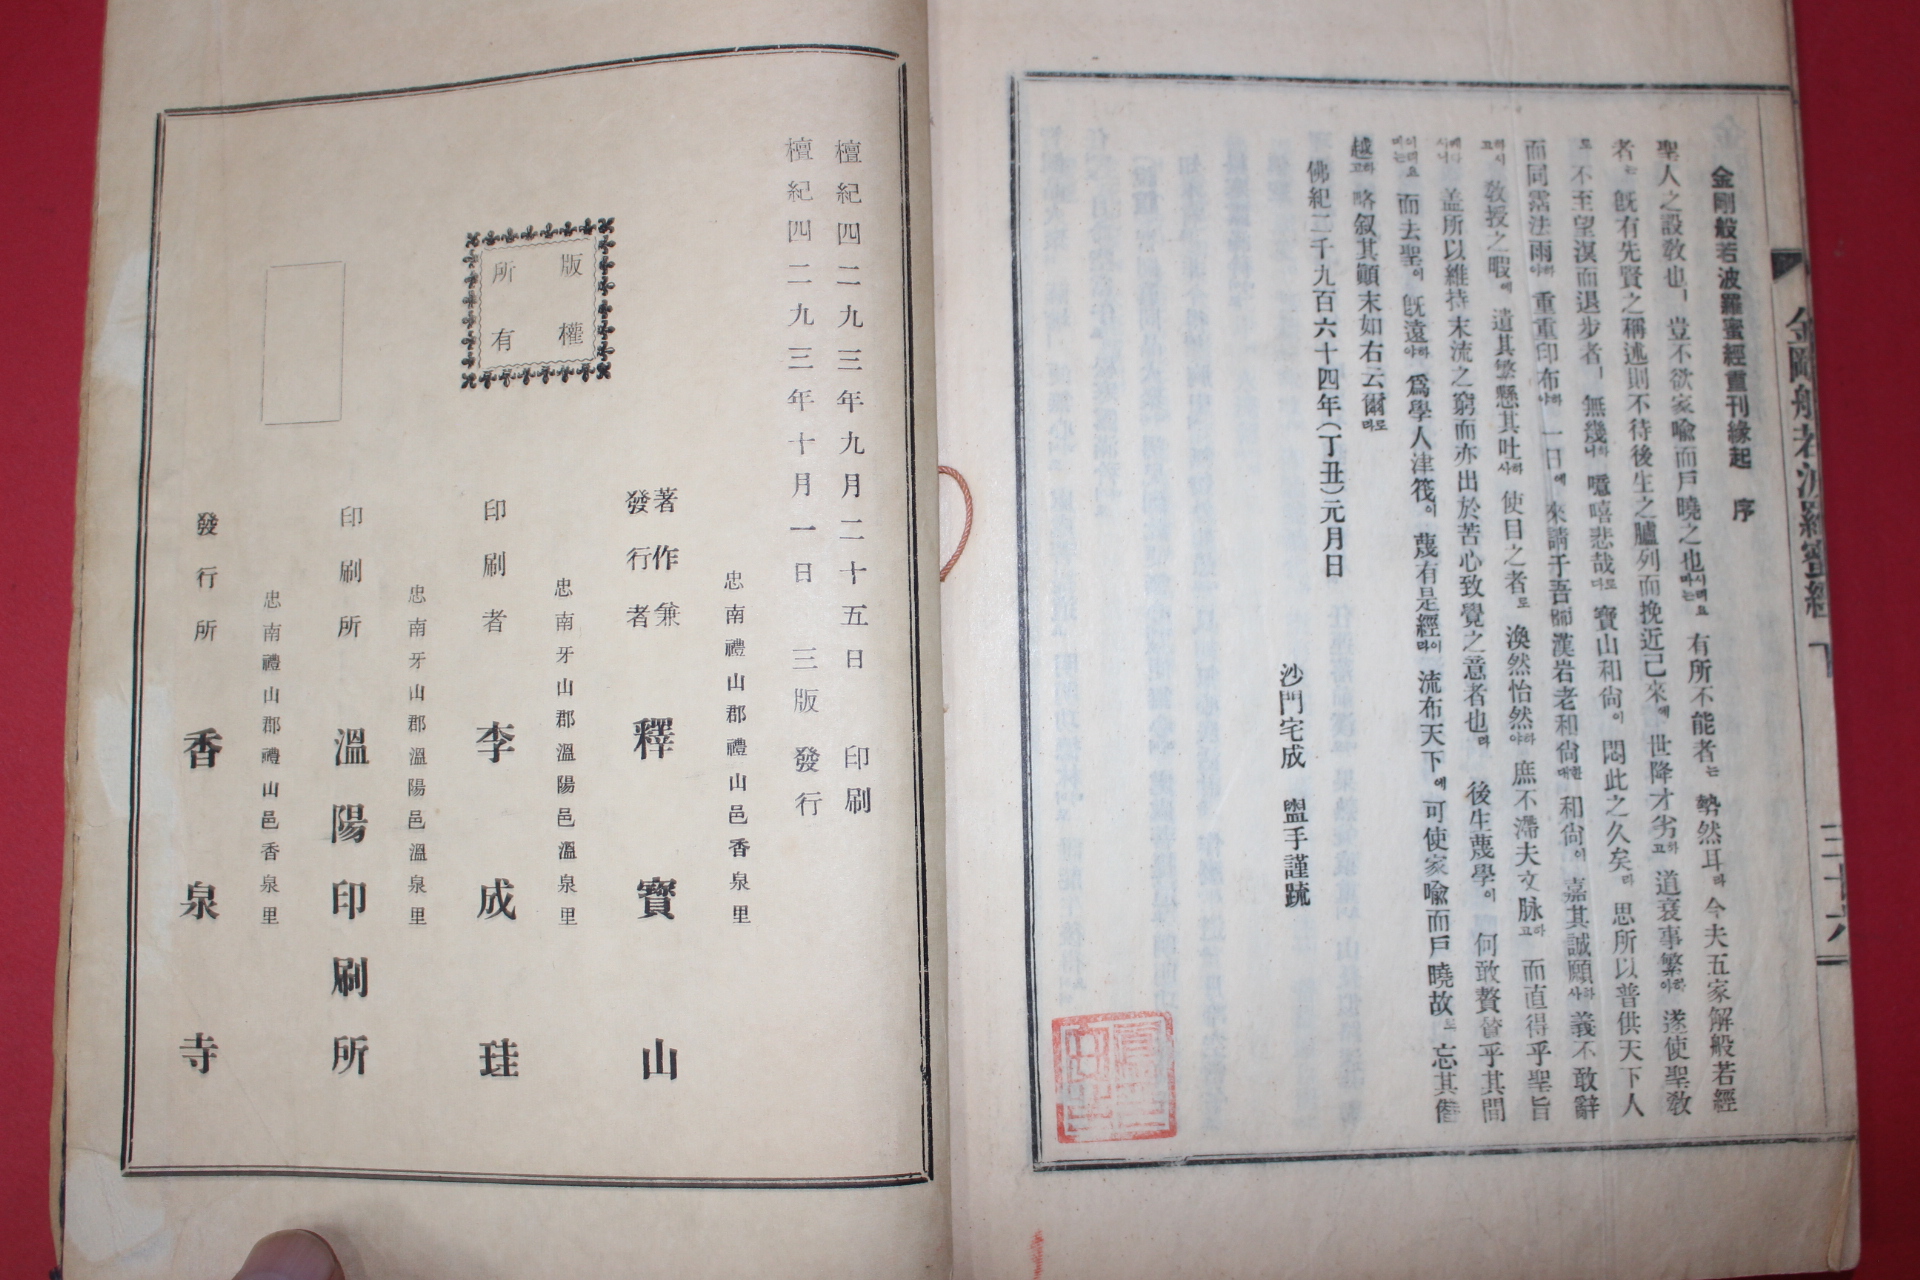 金剛般若波羅蜜經重刊緣起 序
聖人之設敎也, 豈不欲家喩而戶曉之也(시며)마는 有所不能者는 勢然耳라 今夫五家解般若經
者는 旣有先賢之稱述則不待後生之臚列而挽近己來에 世降才劣하고 道衰事繁하야 遂使聖敎
로 不至望溟而退步者, 無幾하니 噫嘻悲哉로다 寶山和尙이 悶此之久矣라 思所以普供天下人
而同霑法雨하야 重重印布하야 一日에 來請于吾師漢岩老和尙한대 和尙이 嘉其誠願하사 義不敢辭
하시고 敎授之暇에 遣其繁懸其吐하사 使目之者로 渙然怡然하야 庶不滯夫文脉하고 而直得乎聖旨
케하시니 盖所以維持末流之窮而亦出於苦心致覺之意者也라 後生蔑學이 何敢贅䝺乎其間
이리요마는 而去聖이 旣遠하야 爲學人津筏이 蔑有是經이라 流布天下에 可使家喩而戶曉故로 忘其僭
越하고 略叙其顚末如右云爾로라
佛紀二千九百六十四年(丁丑)元月日
沙門宅成 盥手謹䟽
金剛般若波羅蜜經 下 三十六
檀紀四二九三年九月二十五日 印刷
檀紀四二九三年十月一日 三版 發行
版權
所有
忠南禮山郡禮山邑香泉里
著作兼
發行者 釋寶山
忠南牙山郡溫陽邑溫泉里
印刷者 李成珪
忠南牙山郡溫陽邑溫泉里
印刷所 溫陽印刷所
忠南禮山郡禮山邑香泉里
發行所 香泉寺